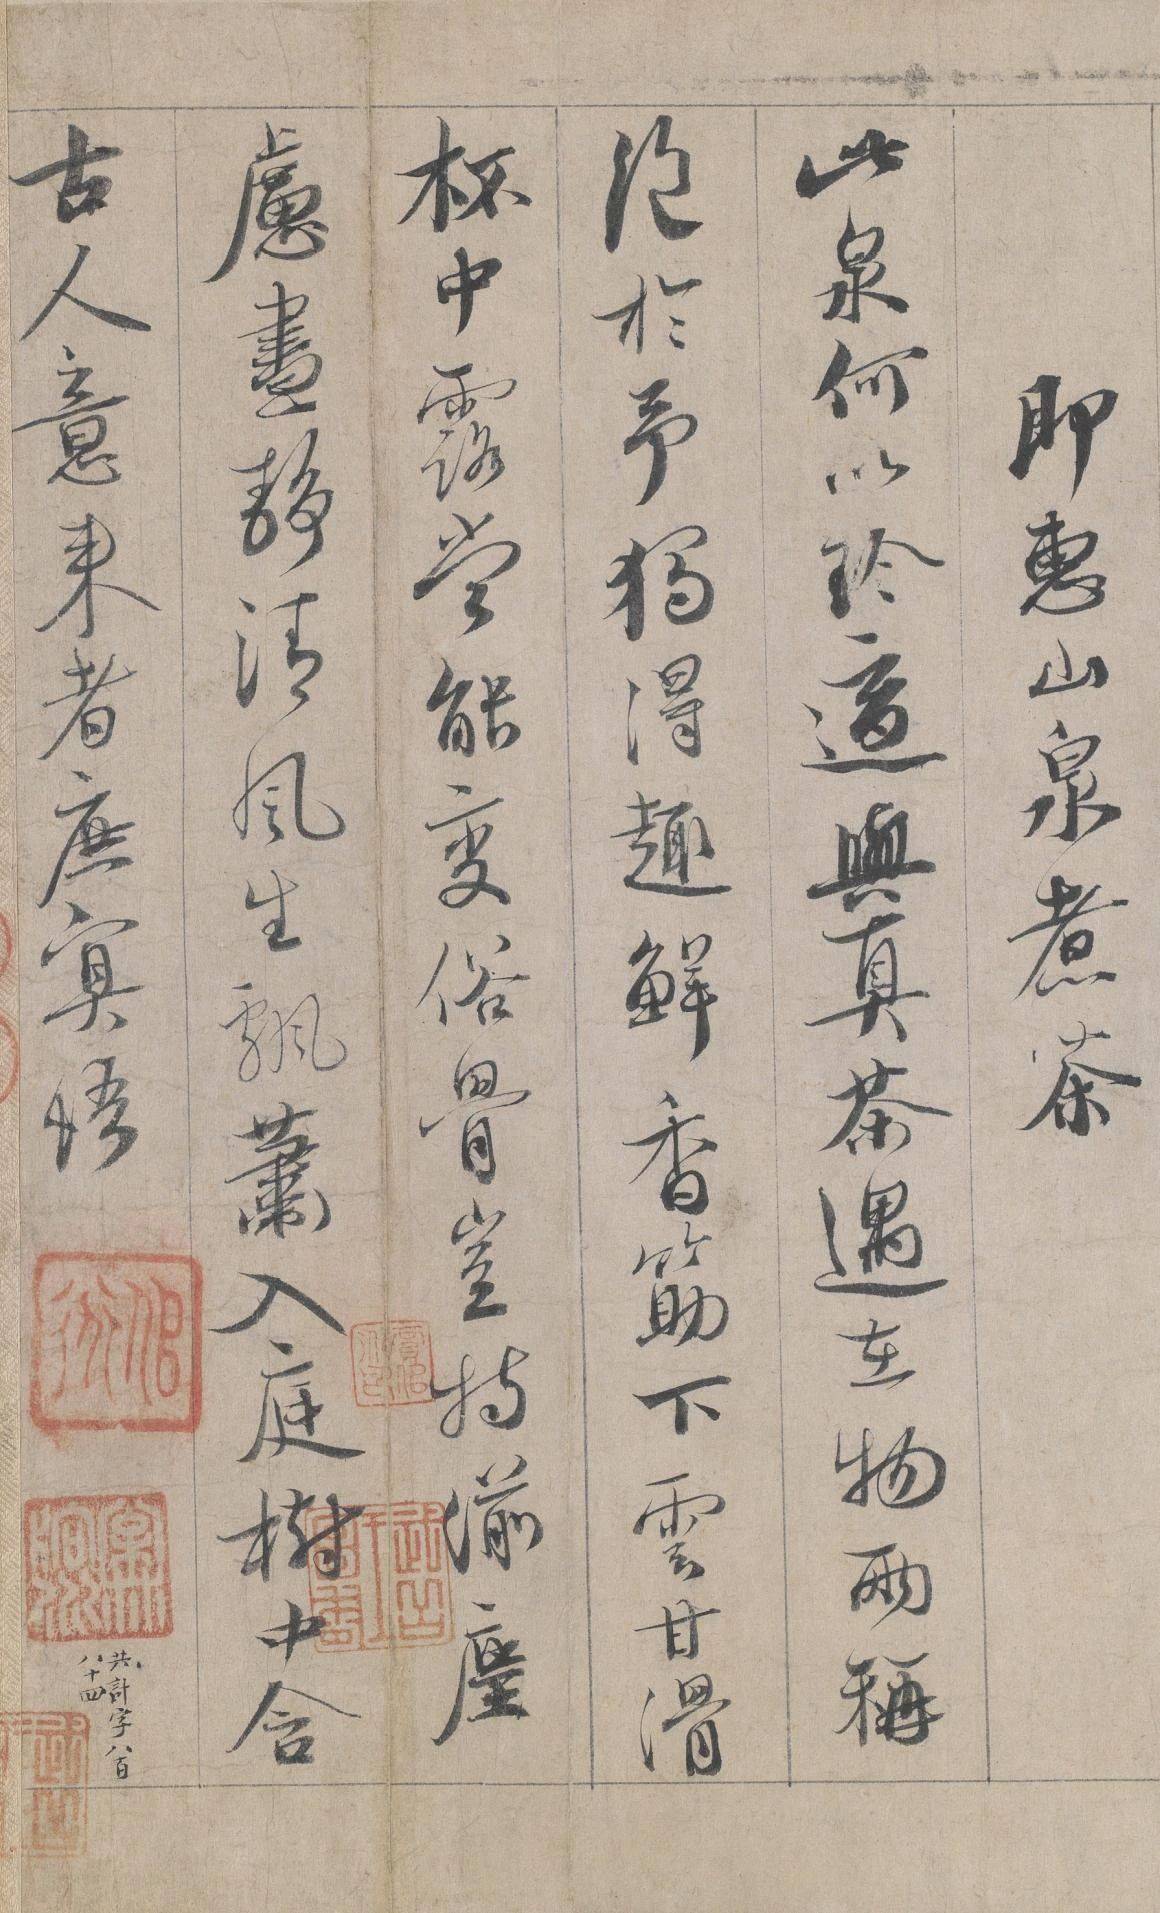 即惠山泉煮茶
此泉何以珍適與真茶遇在物兩稱
絕於予獨得趣鮮香筯下雲甘滑
杯中露當能變俗骨豈特湔塵
慮晝靜清風生飄蕭入庭樹中含
古人意來者庶冥悟
共計字八百
八十四